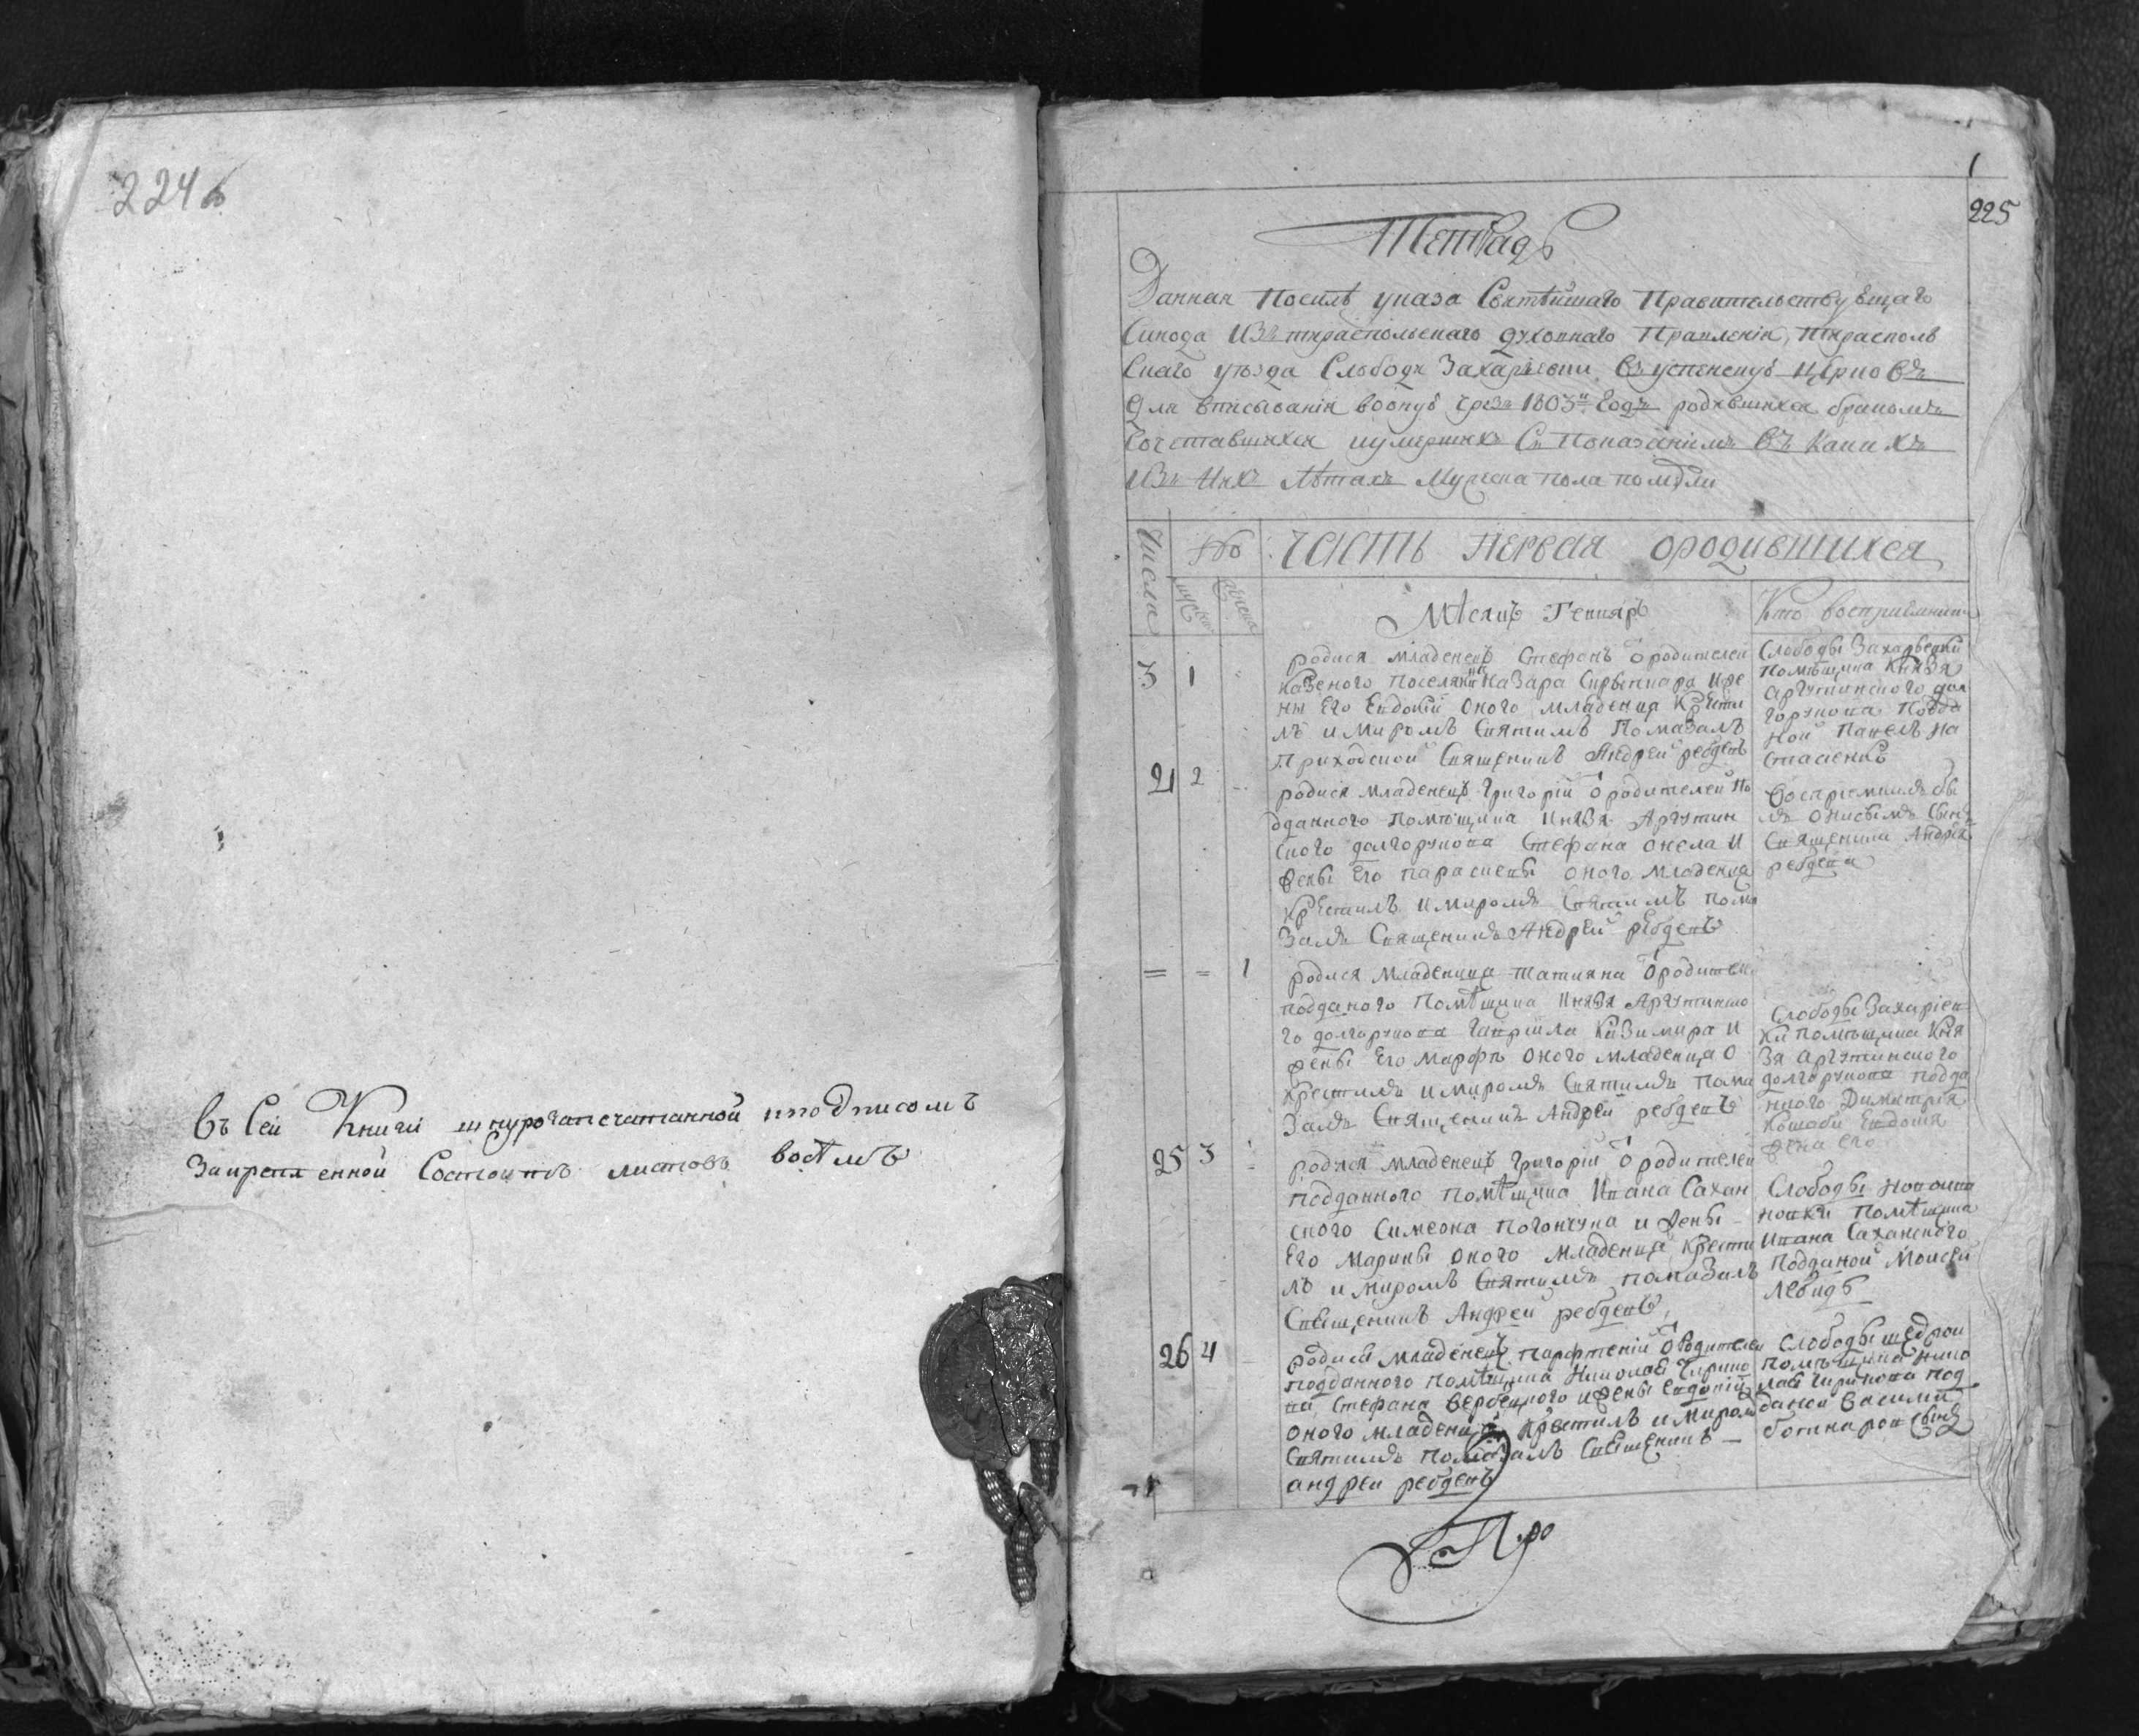 224б
Въ Сей Книги шнурозапечатанной иподписомъ
Закрепленной Состоитъ листовъ восѣмъ
1
225
Тетрадь
Данная Посилѣ указа Святѣйшаго Правительствующаго
Синода Изъ тираспольскаго духовнаго Правленія, тирасполь
Скаго уѣзда Слободы Захарѣевки въ успенскую церковъ
Для вписыванія воону чрезъ 1803й Годъ родившихся бракомъ
Сочетавшихся иумершихъ Съ Показаніемъ Въ какихъ
Изъ Нихъ Лѣтахъ Мужеска пола помѣрли
Числа
№
часть первая ородившихся
мужеска
женска
Мѣсяцъ Генняръ
Кто восприемники
3 1
родися младенецъ Стефанъ ѿ родителей
казеного поселянина Назара Сирвѣтнара иже
ны Его Евдокіи Оного младенца Крѣсти
лъ и Миромъ Святимъ Помазалъ
Приходской Священникъ Андрей ребдевъ
Слободы Захарѣевки
Помѣщика Князя
аргутинского дол
горукова Подда
ной Павелъ На
стасенко
21 2
родися младенецъ Григорій ѿ родителей По
дданного Помѣщика Князя Аргутин
ского долгорукова Стефана онела И
жены Его параскевы оного младенца
Крѣстилъ и миромъ Святимъ пома
залъ Священникъ Андрей ребдевъ
Восприемникъ бы
лъ Онисымъ Сынъ
Священика Андрѣя
ребдева
= = 1
родися младеница татияна ѿ родителей
подданого Помѣщика Князя Аргутинско
го долгорукова Гавріила Казимира И
жены Его Марфы оного младенца
Крестилъ и миромъ Святимъ Пома
залъ Священникъ Андрей ребдевъ
Слободы Захаріев
ки помѣщика Кня
зя аргутинского
долгорукова подда
ного Димитрія
Евдокія
жена его
25 3
родися младенецъ Григорій ѿ родителей
подданного помѣщика Ивана Сахан
ского Симеона Погончука и жены
Его Марины оного младенца Крести
лъ и миромъ Святимъ помазалъ
Священникъ Андрей ребдевъ
Слободы
новки Помѣщика
Ивана Саханского
подданой Моисей
лебидь
26 4
родися младенецъ Парфтеній ѿ Родителей
подданного помѣщика Николая Чирико
ва Стефана вербецкого и жены Евдокіи
оного младенца Крѣстилъ и миромъ
Святимъ помазалъ Священникъ
андреи ребдевъ
Слободы щедрой
помѣщика Нико
лая Чирикова под
даной Василий
Сынъ
Про